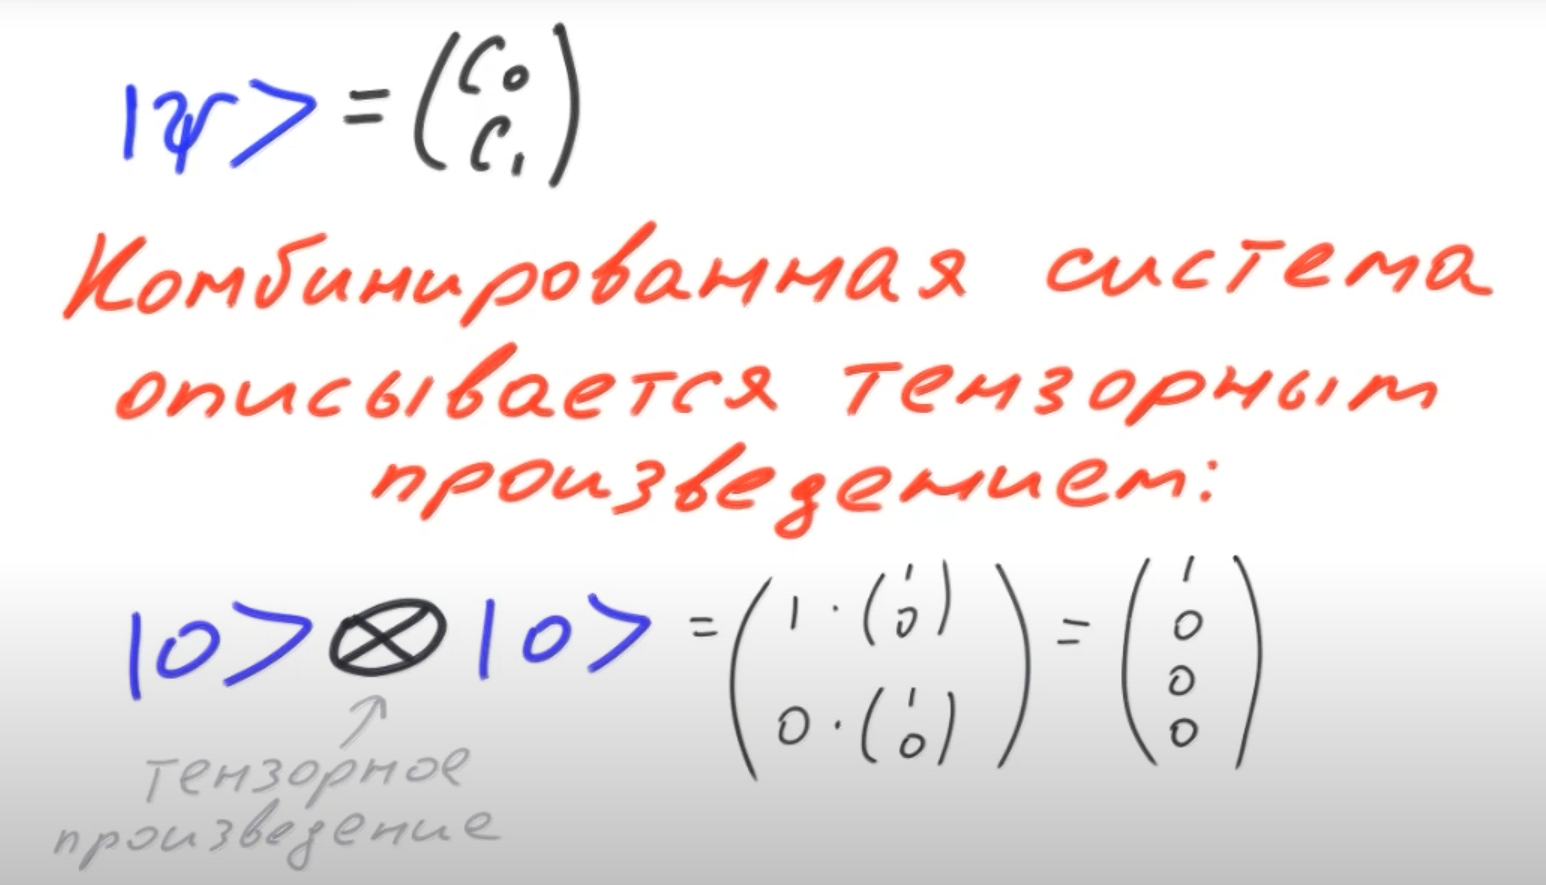 |ψ> = (C₀ C₁)
Комбинированная система
описывается тензорным
произведением:
|0> ⊗ |0> = (1 · (1 0) 0 · (1 0)) = (1 0 0 0)
тензорное
произведение